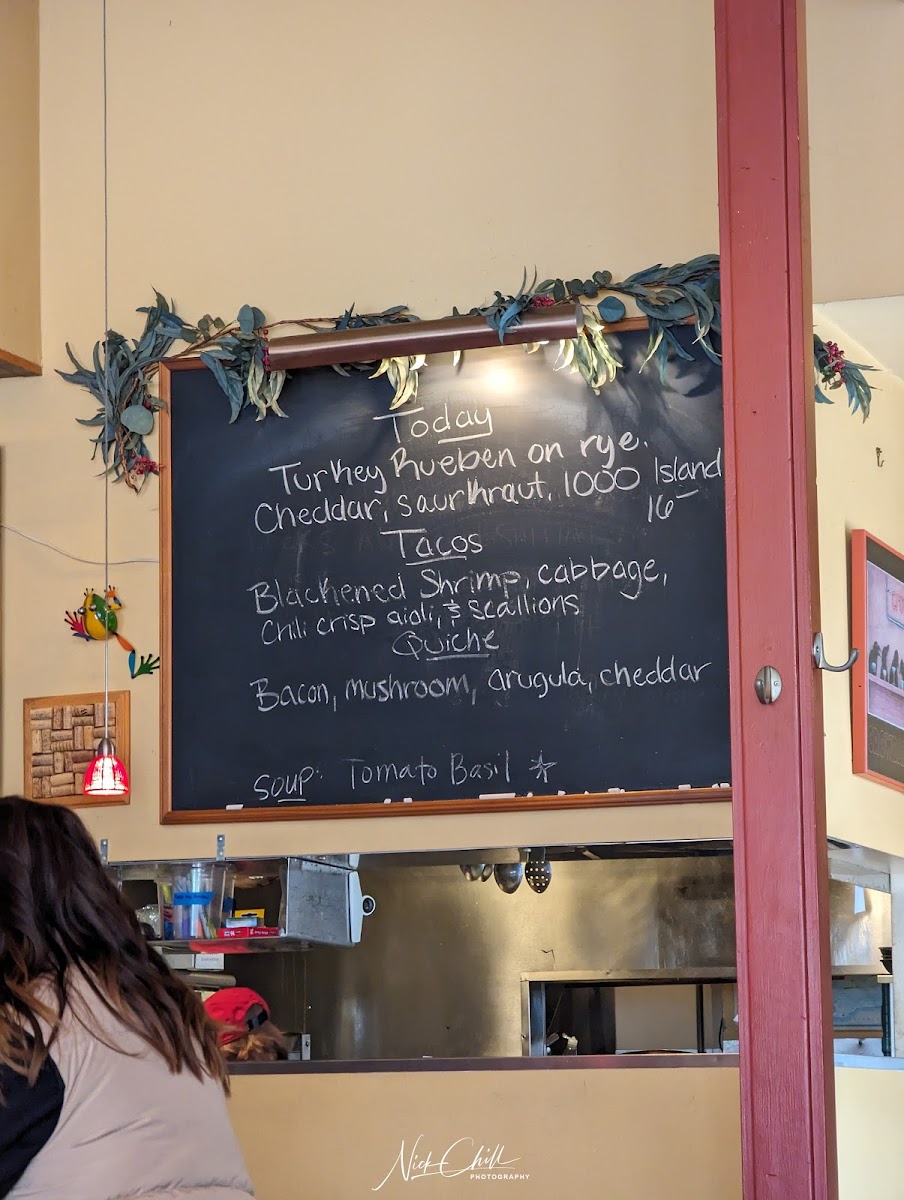 Today
Turkey Rueben on rye.
Cheddar, saurkraut, 1000 Island
16-
Tacos
Blackened Shrimp, cabbage,
Chili crisp aioli, & scallions
Quiche
Bacon, mushroom, arugula, cheddar
Soup: Tomato Basil
Nick Chill
PHOTOGRAPHY